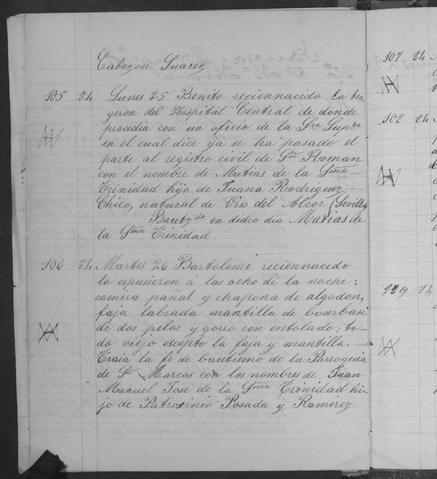 Cabezon Suarez
105 24 Lunes 25 Benito reciennacido lo tra
geron del Hospital Central de donde
procedia con un oficio de la Sra Supta
en el cual dice ya se ha pasado el
parte al registro civil de Sn Roman
con el nombre de Matias de la Sma
Trinidad hijo de Juana Rodriguez
Chico, natural de Viso del Alcor (Sevilla
Bautdo en dicho dia Matias de
la Sma Trinidad
106 24 Martes 26 Bartolomé reciennacido
lo espusieron á las ocho de la noche:
camisa pañal y chapona de algodon,
faja labrada mantilla de bombasi
de dos pelos y gorro con entolado: to
do viejo escepto la faja y mantilla.
Traia la fé de bautismo de la Parroquia
de Sn Marcos con los nombres de Juan
Manuel Jose de la Sma Trinidad hi
jo de Patrocinio Posada y Ramirez
107 24
102 24
129 14